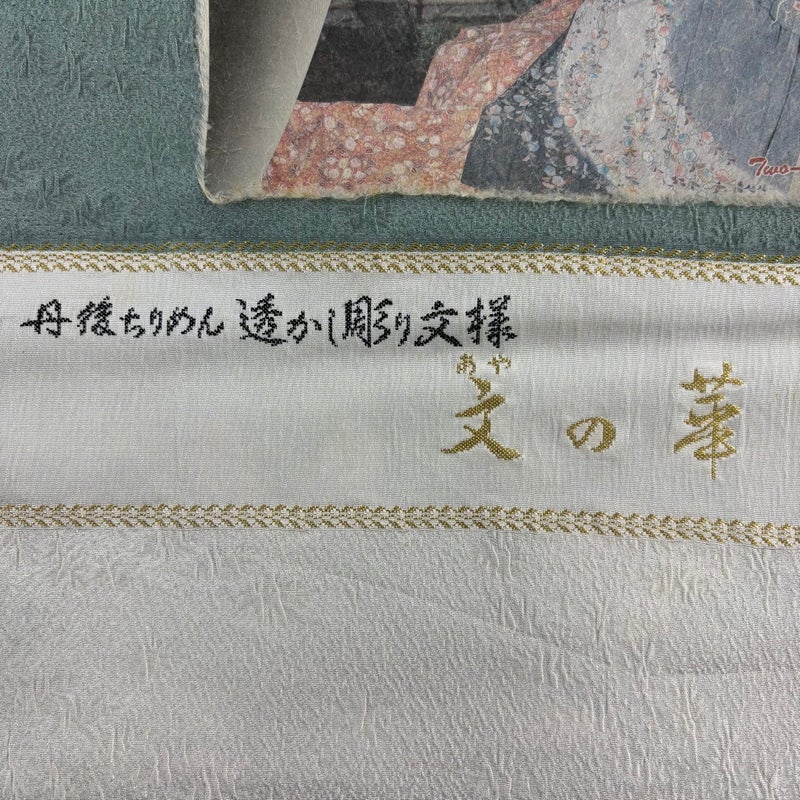 Two-
丹後ちりめん 透かし彫り文様
あや
文の華